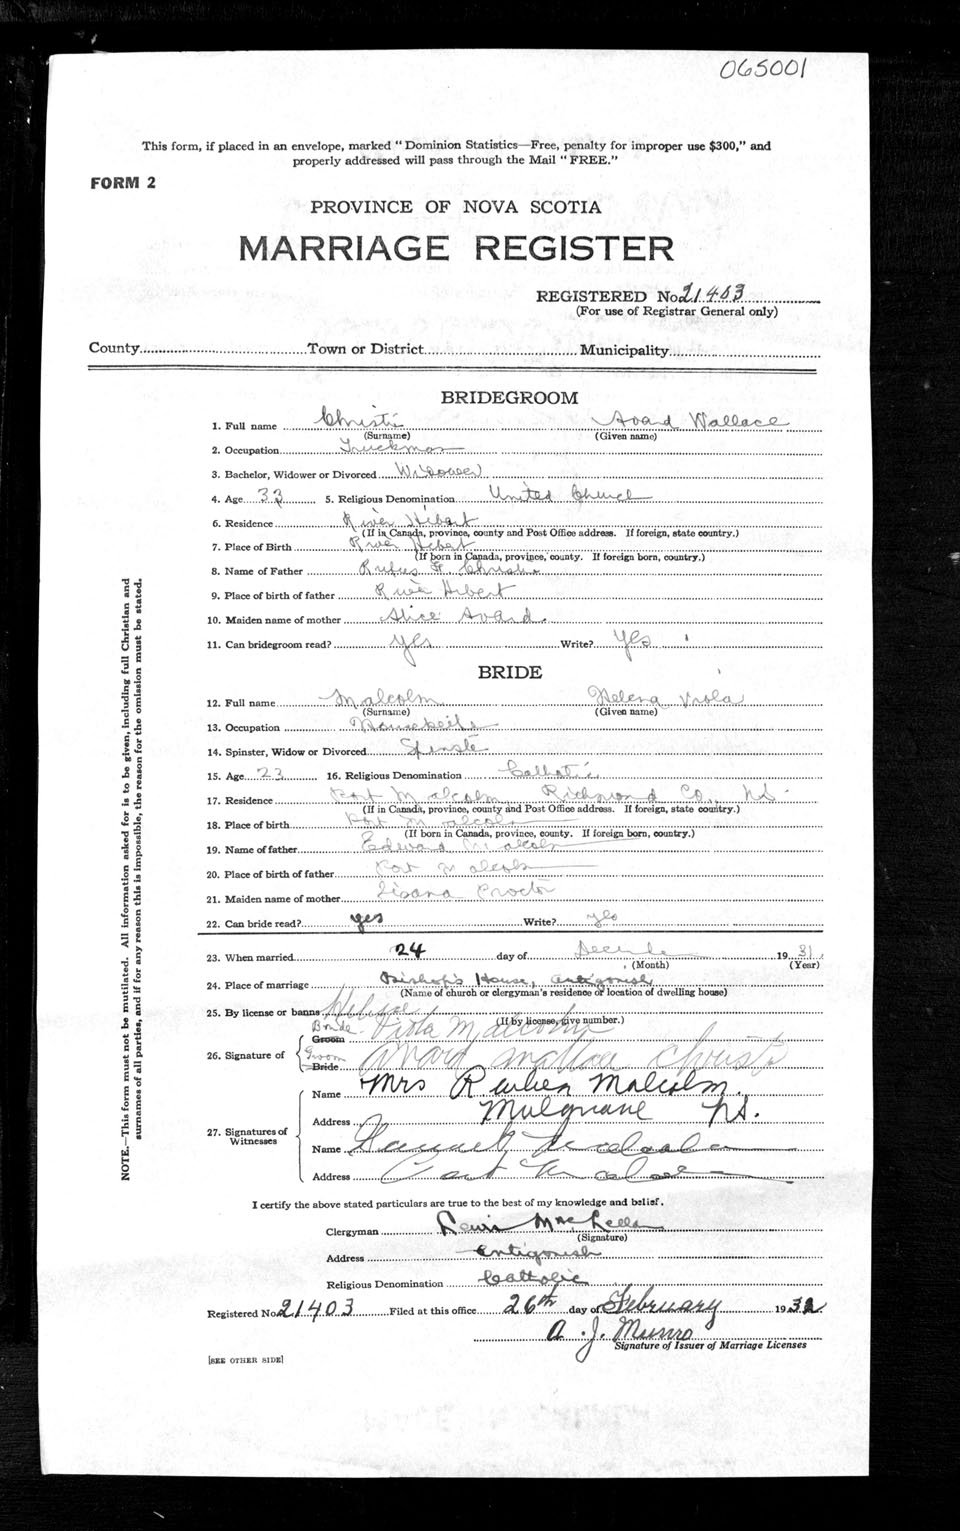 065001
This form, if placed in an envelope, marked "Dominion Statistics—Free, penalty for improper use $300," and
properly addressed will pass through the Mail "FREE."
FORM 2
PROVINCE OF NOVA SCOTIA
MARRIAGE REGISTER
REGISTERED No. 21403
(For use of Registrar General only)
County Town or District Municipality
BRIDEGROOM
1. Full name Christie Avard Wallace
(Surname) (Given name)
2. Occupation Truckman
3. Bachelor, Widower or Divorced Widower
4. Age 33 5. Religious Denomination United Church
6. Residence River Hebert
(If in Canada, province, county and Post Office address. If foreign, state country.)
7. Place of Birth River Hebert
(If born in Canada, province, county. If foreign born, country.)
8. Name of Father Rufus F. Christie
9. Place of birth of father River Hebert
10. Maiden name of mother Alice Avard.
11. Can bridegroom read? yes Write? Yes
BRIDE
12. Full name Malcolm Helena Viola
(Surname) (Given name)
13. Occupation Housekeeper
14. Spinster, Widow or Divorced Spinster
15. Age 23 16. Religious Denomination Catholic
17. Residence Port Malcolm Richmond Co., N.S.
(If in Canada, province, county and Post Office address. If foreign, state country.)
18. Place of birth Port Malcolm
(If born in Canada, province, county. If foreign born, country.)
19. Name of father Edward Malcolm
20. Place of birth of father Port Malcolm
21. Maiden name of mother Proctor
22. Can bride read? yes Write? yes
23. When married 24 day of December 1931
(Month) (Year)
24. Place of marriage Bishop's House, Antigonish
(Name of church or clergyman's residence or location of dwelling house)
25. By license or banns License
(If by license, give number.)
Bride Groom Viola Malcolm
26. Signature of Groom Bride Avard Wallace Christie
Name Mrs Reuben Malcolm.
Address Mulgrave N.S.
27. Signatures of Witnesses
Name Malcolm
Address Port Malcolm
I certify the above stated particulars are true to the best of my knowledge and belief.
Clergyman Lewis MacLellan
(Signature)
Address Antigonish
Religious Denomination Catholic
Registered No. 21403 Filed at this office 26th day of February 1932
A. J. Munro
Signature of Issuer of Marriage Licenses
[SEE OTHER SIDE]
NOTE.—This form must not be mutilated. All information asked for is to be given, including full Christian and
surnames of all parties, and if for any reason this is impossible, the reason for the omission must be stated.